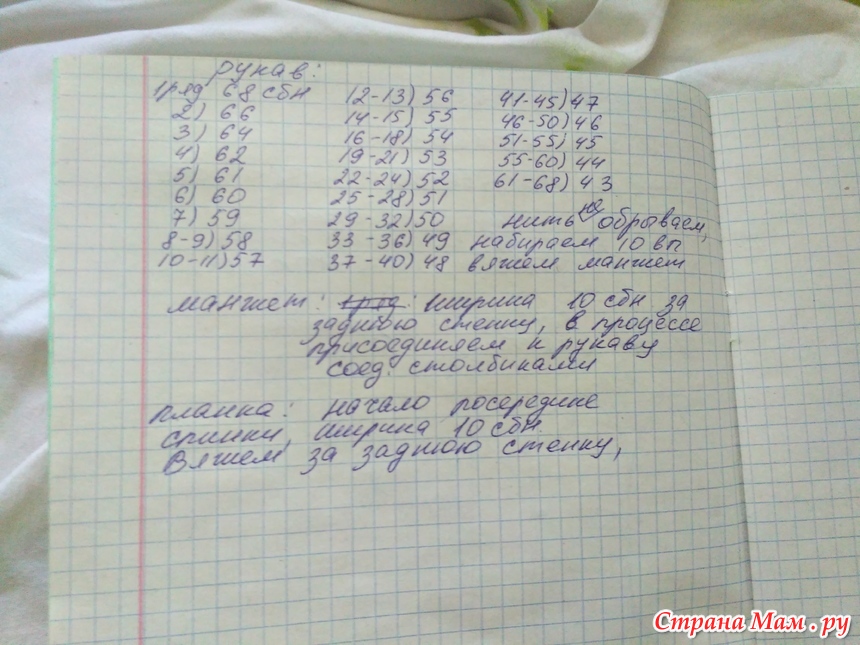 рукав:
1ряд 68 сбн
2) 66
3) 64
4) 62
5) 61
6) 60
7) 59
8-9) 58
10-11) 57
12-13) 56
14-15) 55
16-18) 54
19-21) 53
22-24) 52
25-28) 51
29-32) 50
33-36) 49
37-40) 48
41-45) 47
46-50) 46
51-55) 45
55-60) 44
61-68) 43
нить не обрываем,
набираем 10 вп
вяжем манжет
манжет: 1ряд: ширина 10 сбн за
заднюю стенку, в процессе
присоединяем к рукаву
соед. столбиками
планка: начало посередине
спинки, ширина 10 сбн.
Вяжем за заднюю стенку,
Страна Мам.ру